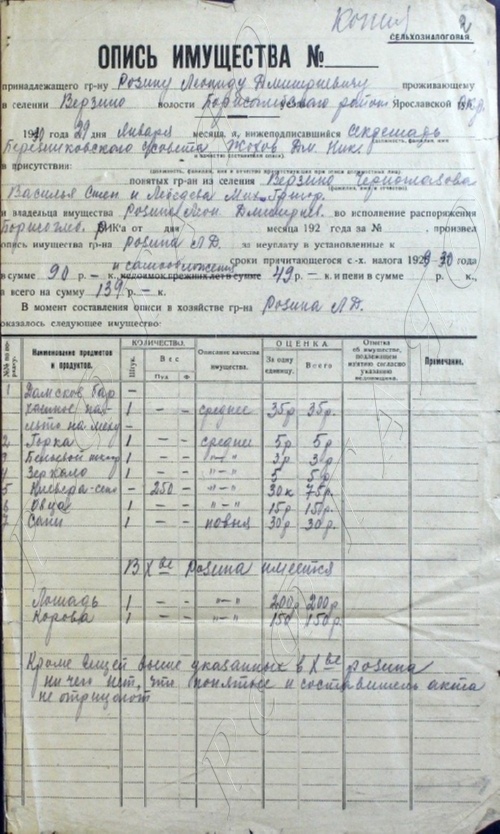 Копия 2
СЕЛЬХОЗНАЛОГОВАЯ.
ОПИСЬ ИМУЩЕСТВА №
принадлежащего гр-ну Розину Леониду Дмитриевичу проживающему
в селении Верзино волости Борисоглебского района Ярославской губ.
19 года 29 дня января месяца, я, нижеподписавшийся секретарь
(должность, фамилия, имя
Березниковского с/совета Жохов Дм. Ник.
и отчество составителя описи)
в присутствии:
(должность, фамилия, имя и отчество присутствующих при описи должностных лиц)
понятых гр-ан из селения Верзино
(фамилия, имя и отчество)
Василья Степ и Лебедева Мих. Григор.
и владельца имущества Розина Леон. Дмитриев. во исполнение распоряжения
РИК'а от дня месяца 192 года за № произвел
опись имущества гр-на Розина Л.Д. за неуплату в установленные к
сроки причитающегося с.-х. налога 1929-30 года
и самообложения
в сумме 90 р. — к. недоимок прежних лет в сумме 49 р. — к. и пени в сумме р. к.,
а всего на сумму 139 р. — к.
В момент составления описи в хозяйстве гр-на Розина Л.Д.
оказалось следующее имущество:
№№ по порядку. Наименование предметов и продуктов. КОЛИЧЕСТВО. Штук. Вес Пуд. Ф. Описание качества имущества. ОЦЕНКА За одну единицу. Всего Отметка об имуществе, подлежащем изъятию согласно указанию недоимщика. Примечание.
1 Дамское бар —
хатное па- 1 — — среднее 35р 35р.
льто на меху —
2 Горка 1 — — средне 5р 5р
3 Бельевой 1 — — "—" 3р 3р
4 Зеркало 1 — — "—" 5 5р
5 Клевера-сено — 250 — "—" 30к 75р.
6 Овца 1 — — "—" 15р 15р.
7 Сани 1 — — новыя 30р 30р.
В х-ве Розина имеется
Лошадь 1 — — "—" 200р 200р
Корова 1 — — "—" 150 150р.
Кроме вещей выше указанных в х-ве Розина
ничего нет, что понятые и составитель акта
не отрицают